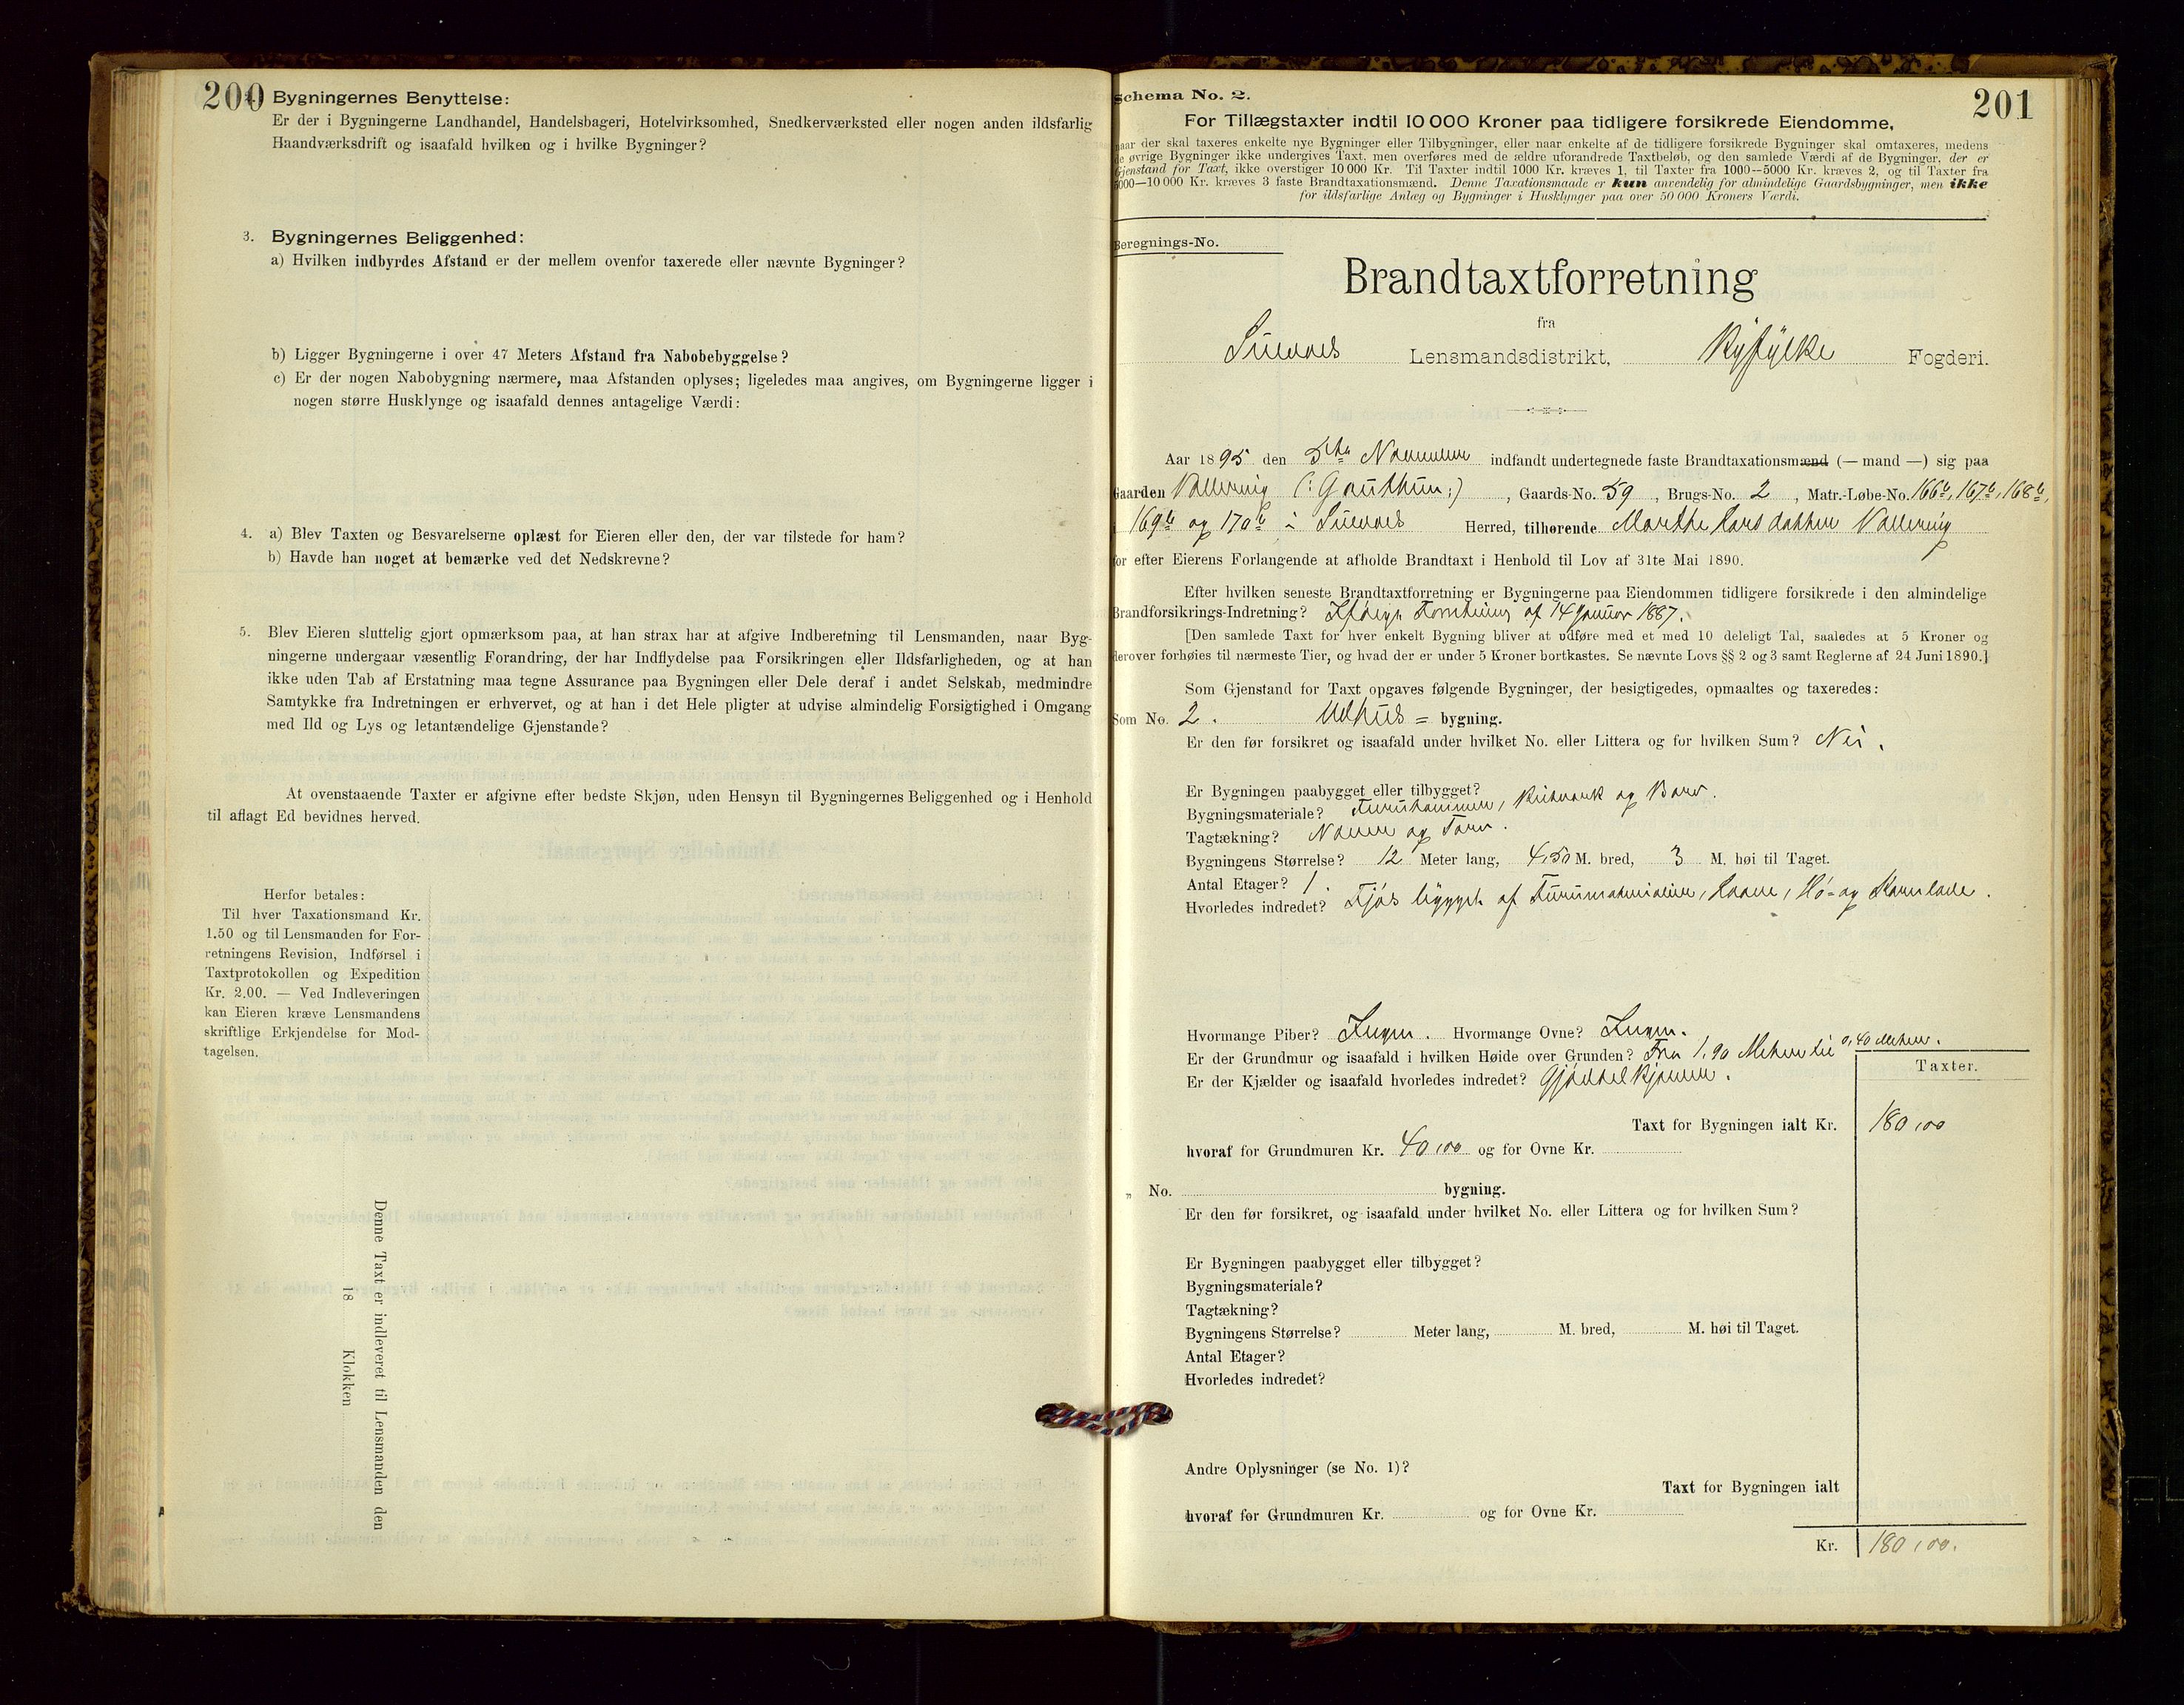 200
Bygningernes Benyttelse:
Er der i Bygningerne Landhandel, Handelsbageri, Hotelvirksomhed, Snedkerværksted eller nogen anden ildsfarlig
Haandværksdrift og isaafald hvilken og i hvilke Bygninger?
3. Bygningernes Beliggenhed:
a) Hvilken indbyrdes Afstand er der mellem ovenfor taxerede eller nævnte Bygninger?
b) Ligger Bygningerne i over 47 Meters Afstand fra Nabobebyggelse?
c) Er der nogen Nabobygning nærmere, maa Afstanden oplyses; ligeledes maa angives, om Bygningerne ligger i
nogen større Husklynge og isaafald dennes antagelige Værdi:
4. a) Blev Taxten og Besvarelserne oplæst for Eieren eller den, der var tilstede for ham?
b) Havde han noget at bemærke ved det Nedskrevne?
5. Blev Eieren sluttelig gjort opmærksom paa, at han strax har at afgive Indberetning til Lensmanden, naar Byg-
ningerne undergaar væsentlig Forandring, der har Indflydelse paa Forsikringen eller Ildsfarligheden, og at han
ikke uden Tab af Erstatning maa tegne Assurance paa Bygningen eller Dele deraf i andet Selskab, medmindre
Samtykke fra Indretningen er erhvervet, og at han i det Hele pligter at udvise almindelig Forsigtighed i Omgang
med Ild og Lys og letantændelige Gjenstande?
At ovenstaaende Taxter er afgivne efter bedste Skjøn, uden Hensyn til Bygningernes Beliggenhed og i Henhold
til aflagt Ed bevidnes herved.
Herfor betales:
Til hver Taxationsmand Kr.
1.50 og til Lensmanden for For-
retningens Revision, Indførsel i
Taxtprotokollen og Expedition
Kr. 2.00. — Ved Indleveringen
kan Eieren kræve Lensmandens
skriftlige Erkjendelse for Mod-
tagelsen.
Denne Taxt er indleveret til Lensmanden den
18 Klokken
201
Schema No. 2.
For Tillægstaxter indtil 10 000 Kroner paa tidligere forsikrede Eiendomme,
naar der skal taxeres enkelte nye Bygninger eller Tilbygninger, eller naar enkelte af de tidligere forsikrede Bygninger skal omtaxeres, medens
de øvrige Bygninger ikke undergives Taxt, men overføres med de ældre uforandrede Taxtbeløb, og den samlede Værdi af de Bygninger, der er
Gjenstand for Taxt, ikke overstiger 10 000 Kr. Til Taxter indtil 1000 Kr. kræves 1, til Taxter fra 1000—5000 Kr. kræves 2, og til Taxter fra
5000—10 000 Kr. kræves 3 faste Brandtaxationsmænd. Denne Taxationsmaade er kun anvendelig for almindelige Gaardsbygninger, men ikke
for ildsfarlige Anlæg og Bygninger i Husklynger paa over 50 000 Kroners Værdi.
Beregnings-No.
Brandtaxtforretning
fra
Lensmandsdistrikt, Ryfylke Fogderi.
Aar 1895 den 5te November indfandt undertegnede faste Brandtaxationsmænd (— mand —) sig paa
Gaarden , Gaards-No. 59, Brugs-No. 2, Matr.-Løbe-No. 166b, 167b, 168b,
169b og 170b i Herred, tilhørende Marthe Larsdatter
for efter Eierens Forlangende at afholde Brandtaxt i Henhold til Lov af 31te Mai 1890.
Efter hvilken seneste Brandtaxtforretning er Bygningerne paa Eiendommen tidligere forsikrede i den almindelige
Brandforsikrings-Indretning? Ifølge Forretning af 14 Januar 1887.
[Den samlede Taxt for hver enkelt Bygning bliver at udføre med et med 10 deleligt Tal, saaledes at 5 Kroner og
derover forhøies til nærmeste Tier, og hvad der er under 5 Kroner bortkastes. Se nævnte Lovs §§ 2 og 3 samt Reglerne af 24 Juni 1890.]
Som Gjenstand for Taxt opgaves følgende Bygninger, der besigtigedes, opmaaltes og taxeredes:
Som No. 2. Udhus = bygning.
Er den før forsikret og isaafald under hvilket No. eller Littera og for hvilken Sum? Nei.
Er Bygningen paabygget eller tilbygget?
Bygningsmateriale? Furutømmer, Bindverk og Bord.
Tagtækning? Næver og Torv.
Bygningens Størrelse? 12 Meter lang, 4,50 M. bred, 3 M. høi til Taget.
Antal Etager? 1.
Hvorledes indredet? Fjøs bygget af Furumaterialier, Laave, Hø- og Kornlade.
Hvormange Piber? Ingen. Hvormange Ovne? Ingen.
Er der Grundmur og isaafald i hvilken Høide over Grunden? Fra 1,90 Meter til 0,40 Meter.
Er der Kjælder og isaafald hvorledes indredet? Gjødselkjælder.
Taxter.
Taxt for Bygningen ialt Kr. 180,00
hvoraf for Grundmuren Kr. 40,00 og for Ovne Kr.
„ No. bygning.
Er den før forsikret, og isaafald under hvilket No. eller Littera og for hvilken Sum?
Er Bygningen paabygget eller tilbygget?
Bygningsmateriale?
Tagtækning?
Bygningens Størrelse? Meter lang, M. bred, M. høi til Taget.
Antal Etager?
Hvorledes indredet?
Andre Oplysninger (se No. 1)?
Taxt for Bygningen ialt
hvoraf for Grundmuren Kr. og for Ovne Kr.
Kr. 180,00.